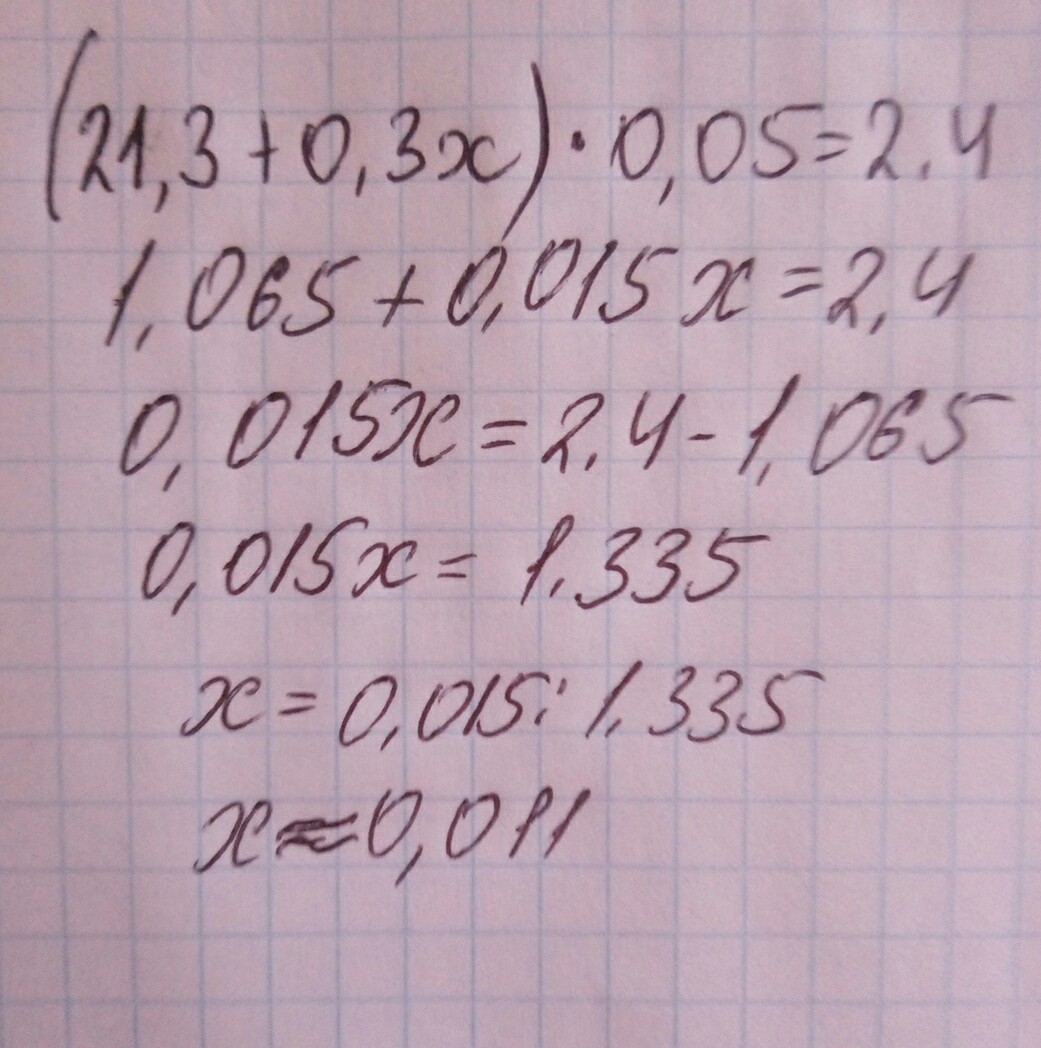 (21,3+0,3x)·0,05=2.4
1,065+0,015x=2,4
0,015x=2.4-1,065
0,015x=1.335
x=0,015:1.335
x≈0,011